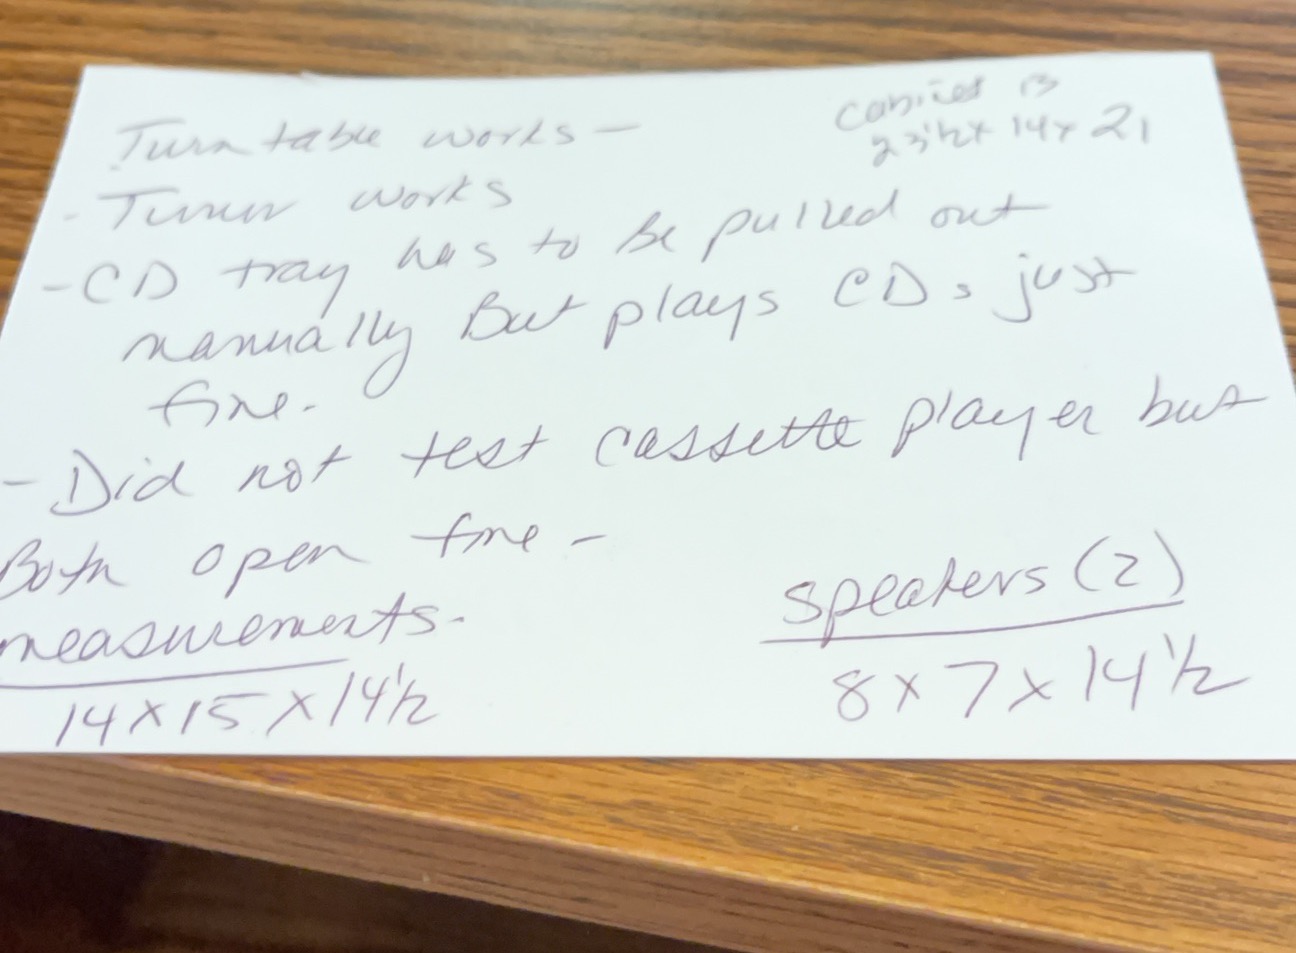 Turntable works -
cabinet is
23 1/2 x 14 x 21
- Tuner works
- CD tray has to be pulled out
manually But plays CDs just
fine.
- Did not test cassette player but
Both open fine -
measurements.
14 x 15 x 14 1/2
speakers (2)
8 x 7 x 14 1/2